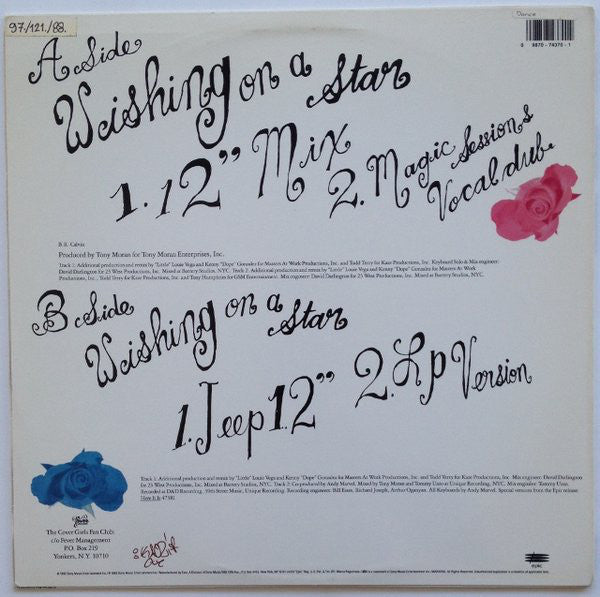 97./121./88.
Dance
0 9870 - 74370 - 1
A Side
Wishing on a Star
1. 12" Mix
2. Magic Sessions
Vocal dub.
B.R. Calvin
Produced by Tony Moran for Tony Moran Enterprises, Inc.
Track 1: Additional production and remix by "Little" Louie Vega and Kenny "Dope" Gonzalez for Masters At Work Productions, Inc. and Todd Terry for Kaze Productions, Inc. Keyboard Solo & Mix engineer:
David Darlington for 25 West Productions, Inc. Mixed at Battery Studios, NYC. Track 2: Additional production and remix by "Little" Louie Vega and Kenny "Dope" Gonzalez for Masters At Work
Productions, Inc., Todd Terry for Kaze Productions, Inc. and Tony Humphries for GSM Entertainment. Mix engineer: David Darlington for 25 West Productions, Inc. Mixed at Battery Studios, NYC.
B Side
Wishing on a Star
1. Jeep 12"
2. Lp Version
Track 1: Additional production and remix by "Little" Louie Vega and Kenny "Dope" Gonzalez for Masters At Work Productions, Inc. and Todd Terry for Kaze Productions, Inc. Mix engineer: David Darlington
for 25 West Productions, Inc. Mixed at Battery Studios, NYC. Track 2: Co-produced by Andy Marvel. Mixed by Tony Moran and Tommy Uzzo at Unique Recording, NYC. Mix engineer: Tommy Uzzo.
Recorded at D&D Recording, 39th Street Music, Unique Recording. Recording engineers: Bill Esses, Richard Joseph, Arthur Oganyan. All Keyboards by Andy Marvel. Special versions from the Epic release
Here It Is 47381.
The Cover Girls Fan Club
c/o Fever Management
P.O. Box 219
Yonkers, N.Y. 10710
epic